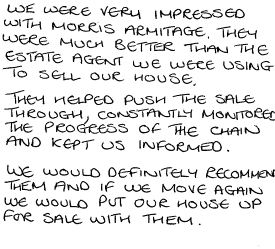 WE WERE VERY IMPRESSED
WITH MORRIS ARMITAGE. THEY
WERE MUCH BETTER THAN THE
ESTATE AGENT WE WERE USING
TO SELL OUR HOUSE.
THEY HELPED PUSH THE SALE
THROUGH, CONSTANTLY MONITORED
THE PROGRESS OF THE CHAIN
AND KEPT US INFORMED.
WE WOULD DEFINITELY RECOMMEN
THEM AND IF WE MOVE AGAIN
WE WOULD PUT OUR HOUSE UP
FOR SALE WITH THEM.